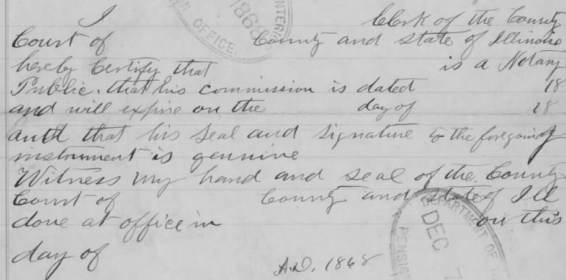 I Clerk of the County
Court of County and state of Illinois
hereby Certify that is a Notary
Public. that his commission is dated 18
and will expire on the day of 18
auth that his seal and signature to the foregoing
instrument is genuine
Witness my hand and seal of the County
Court of County and state of Ill
done at office in on this
day of A.D. 1868
1868
OFFICE
DEPARTMENT OF
DEC
PENSION